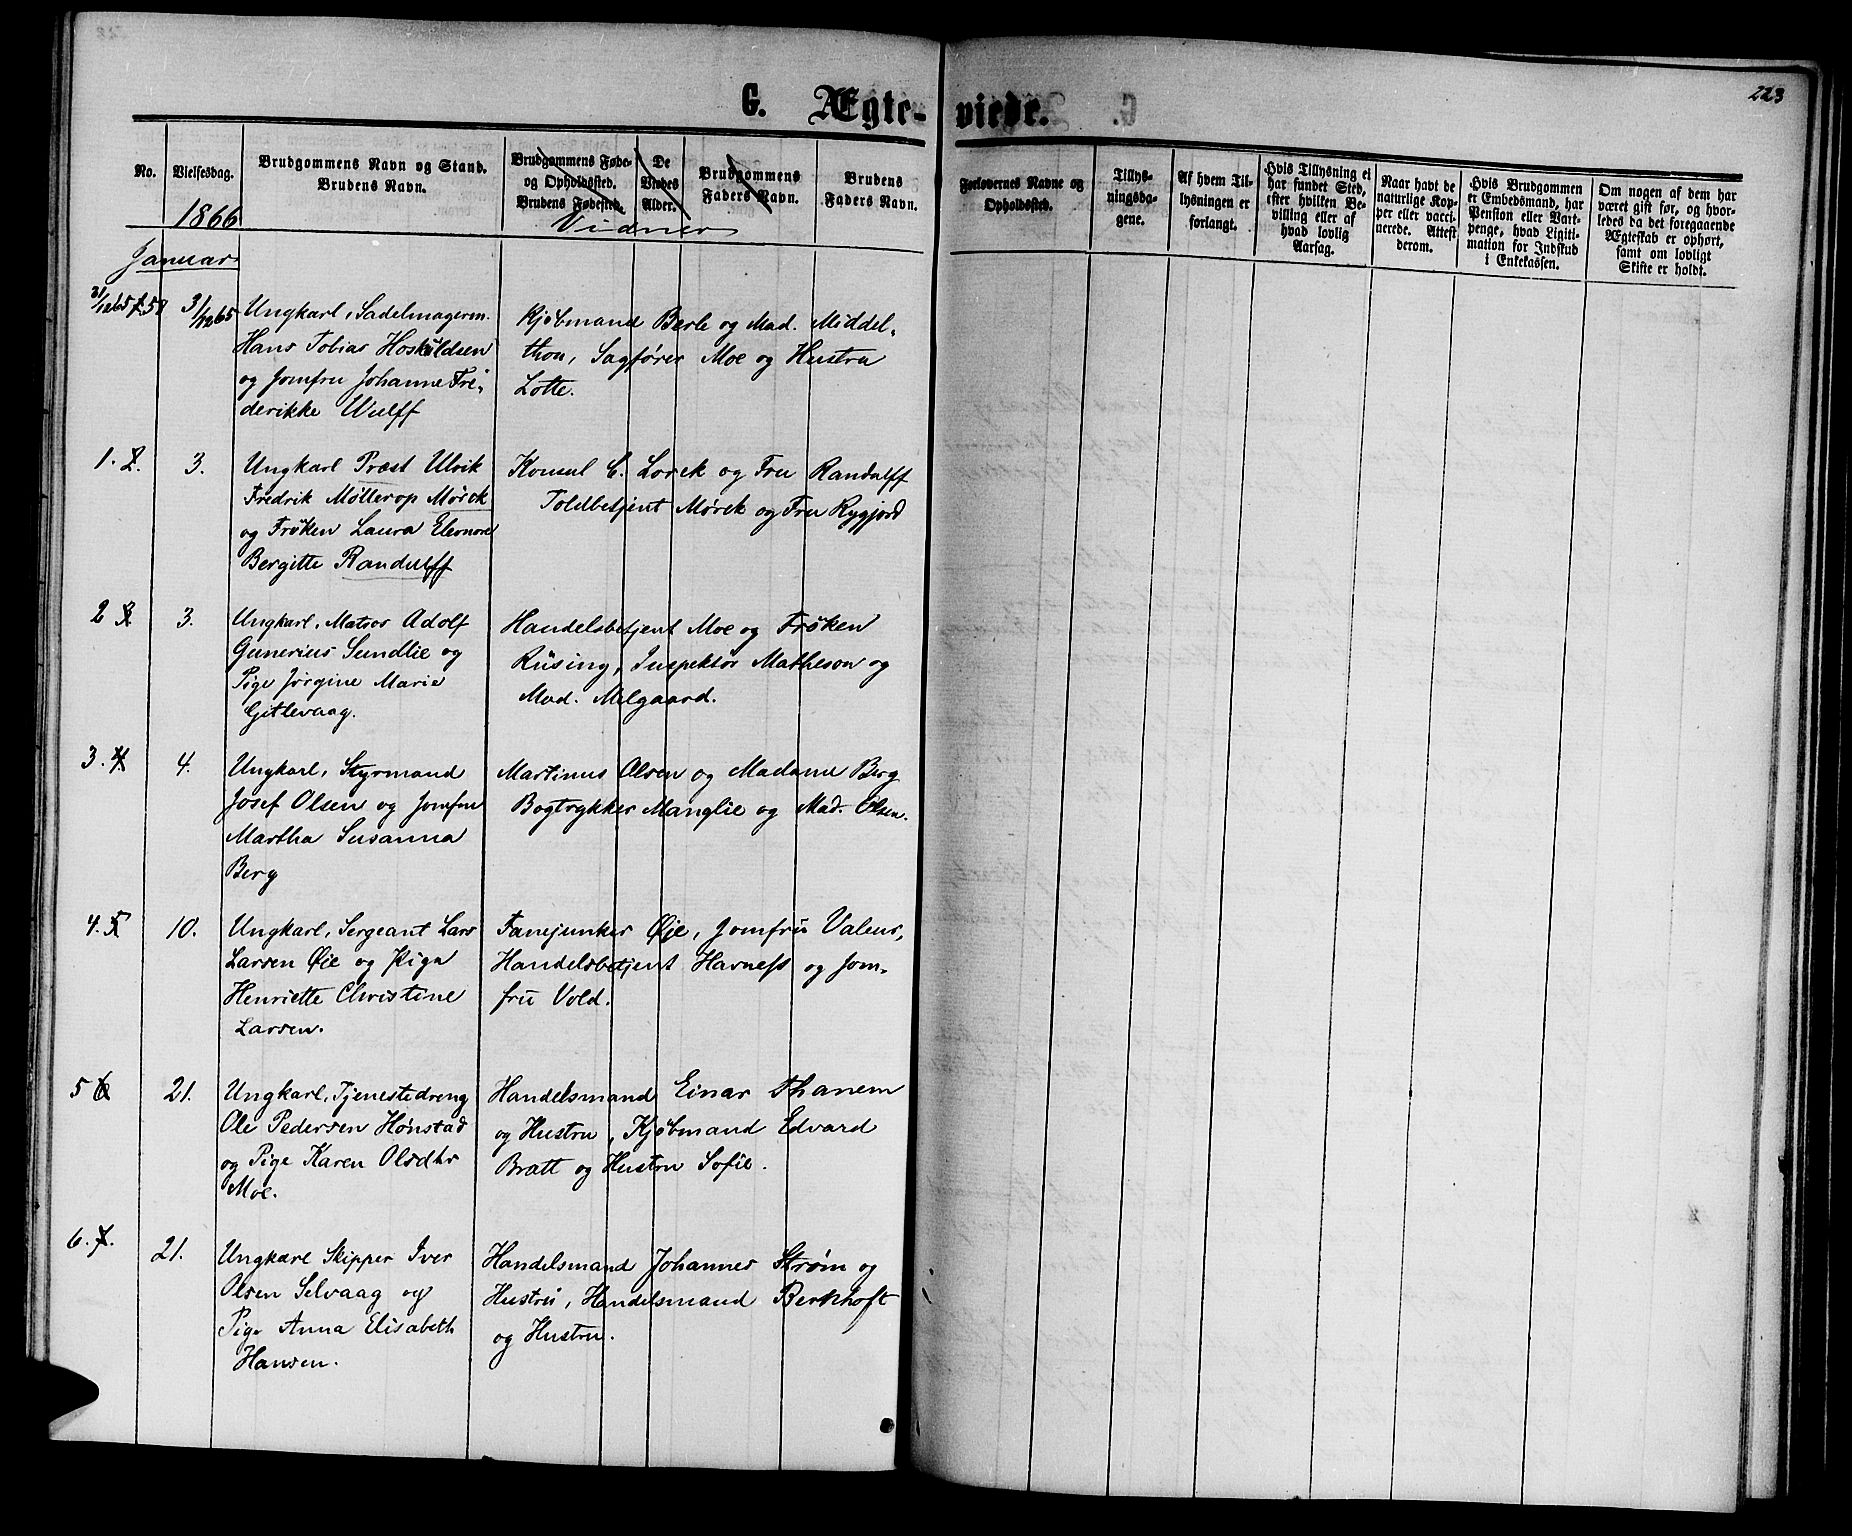 223
G. Ægte-viede.
No.
Vielsesdag.
Brudgommens Navn og Stand.
Brudens Navn.
Brudgommens Føde-
og Opholdssted.
Brudens Fødested.
De
Viedes
Alder.
Brudgommens
Faders Navn.
Brudens
Faders Navn.
Forlovernes Navne og
Opholdssted.
Tillys-
ningsda-
gene.
Af hvem Til-
lysningen er
forlangt.
Hvis Tillysning ei
har fundet Sted,
efter hvilken Be-
villing eller af
hvad lovlig
Aarsag.
Naar havt de
naturlige Kop-
per eller vacci-
nerede. Attest
derom.
Hvis Brudgommen
er Embedsmand, har
Pension eller Vart-
penge, hvad Ligiti-
mation for Indskud
i Enkekassen.
Om nogen af dem har
været gift før, og hvor-
ledes da det foregaaende
Ægteskab er ophørt,
samt om lovligt
Skifte er holdt.
1866
Vidner
Januar
31/12 65 58
31/12 65
Ungkarl, Sadelmagerm.
Hans Tobias Hoskildsen
og Jomfru Johanne Fre-
derikke Wulff
Kjøbmand Berle og Mad. Middel-
thon, Sagfører Moe og Hustru
Lotte.
1. 2.
3.
Ungkarl Præst Ulrik
Fredrik Møllerop Mørck
og Frøken Laura Eleonore
Bergitte Randulff
Konsul C. Lorck og Fru Randulff
Toldbetjent Mørck og Fru Rygjord
2 3.
3.
Ungkarl, Matros Adolf
Gunerius Sundlie og
Pige Jørgine Marie
Gittevaag.
Handelsbetjent Moe og Frøken
Rüsing, Inspektør Matheson og
Mad. Melgaard.
3. 4
4.
Ungkarl, Styrmand
Josef Olsen og Jomfru
Martha Susanna
Berg
Martinus Olsen og Madame Berg
Bogtrykker Manglie og Mad. Olsen.
4. 5
10.
Ungkarl, Sergeant Lars
Larsen Øie og Piga
Henriette Christine
Larsen.
Fanejunker Øje, Jomfru Valeur,
Handelsbetjent Havness og Jom-
fru Vold.
5 6
21.
Ungkarl, Tjenestedreng
Ole Pedersen Hønstad
og Pige Karen Olsdtr
Moe.
Handelsmand Einar Thanem
og Hustru, Kjøbmand Edvard
Bratt og Hustru Sofie.
6. 7.
21.
Ungkarl Skipper Iver
Olsen Selvaag og
Pige Anna Elisabeth
Hansen.
Handelsmand Johannes Strøm og
Hustru, Handelsmand Berkhoft
og Hustru.